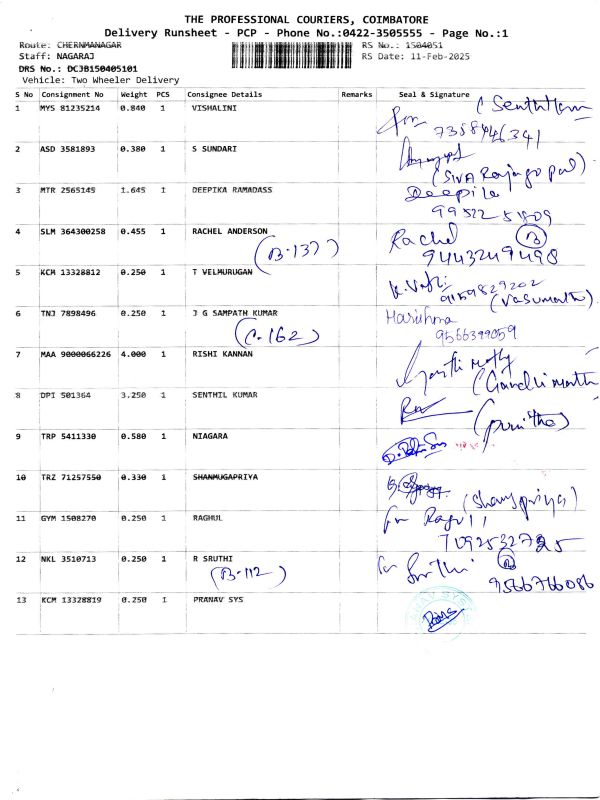 THE PROFESSIONAL COURIERS, COIMBATORE
Delivery Runsheet - PCP - Phone No.:0422-3505555 - Page No.:1
Route: CHERNMANAGAR
RS No.: 1504051
Staff: NAGARAJ
RS Date: 11-Feb-2025
DRS No.: DCJB150405101
Vehicle: Two Wheeler Delivery
S No Consignment No Weight PCS Consignee Details Remarks Seal & Signature
1 MYS 81235214 0.840 1 VISHALINI
2 ASD 3581893 0.380 1 S SUNDARI
(SIVA Rajagopal)
3 MTR 2565145 1.645 1 DEEPIKA RAMADASS Deepika
4 SLM 364300258 0.455 1 RACHEL ANDERSON Rachel
(B-137) 9443249498
5 KCM 13328812 0.250 1 T VELMURUGAN
(Vasumathi)
6 TNJ 7898496 0.250 1 J G SAMPATH KUMAR Harishma
(C-162) 9566399059
7 MAA 9000066226 4.000 1 RISHI KANNAN
(Gandhimathi
8 DPI 501364 3.250 1 SENTHIL KUMAR
(punitha)
9 TRP 5411330 0.580 1 NIAGARA
10 TRZ 71257550 0.330 1 SHANMUGAPRIYA
(Shanpriya)
11 GYM 1508270 0.250 1 RAGHUL
12 NKL 3510713 0.250 1 R SRUTHI Sruthi
(B-112) 9566766086
13 KCM 13328819 0.250 1 PRANAV SYS